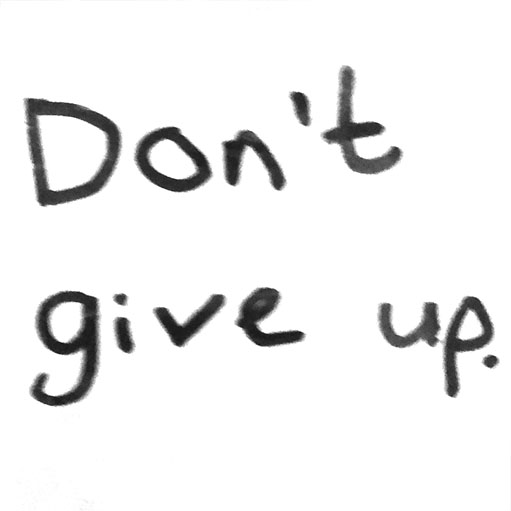 Don't
give up.